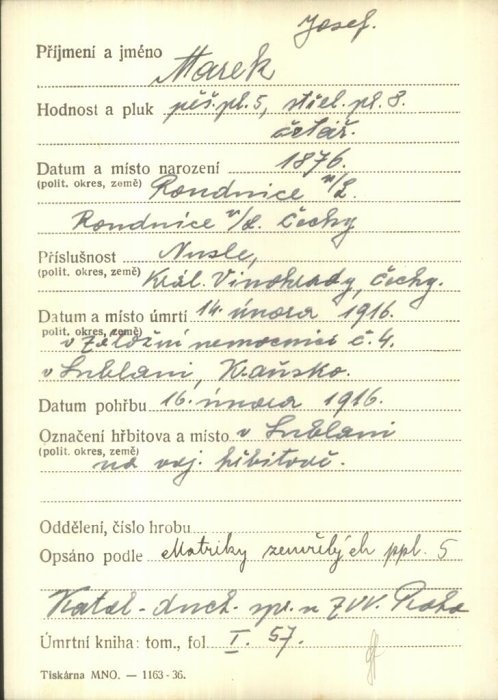 Josef.
Příjmení a jméno Marek
Hodnost a pluk pěš. pl. 5, střel. pl. 8.
četař.
Datum a místo narození 1876.
(polit. okres, země) Roudnice n/L.
Roudnice n/L. Čechy
Příslušnost Nusle,
(polit. okres, země) Král. Vinohrady, Čechy.
Datum a místo úmrtí 14. února 1916.
polit. okres, země)
v Záložní nemocnici č. 4.
v Lublani, Kraňsko.
Datum pohřbu 16. února 1916.
Označení hřbitova a místo v Lublani
(polit. okres, země) na voj. hřbitově.
Oddělení, číslo hrobu
Opsáno podle Matriky zemřelých ppl. 5
Katol. - duch. spr. u ZVV. Praha
Úmrtní kniha: tom., fol I. 57.
Tiskárna MNO. — 1163-36.